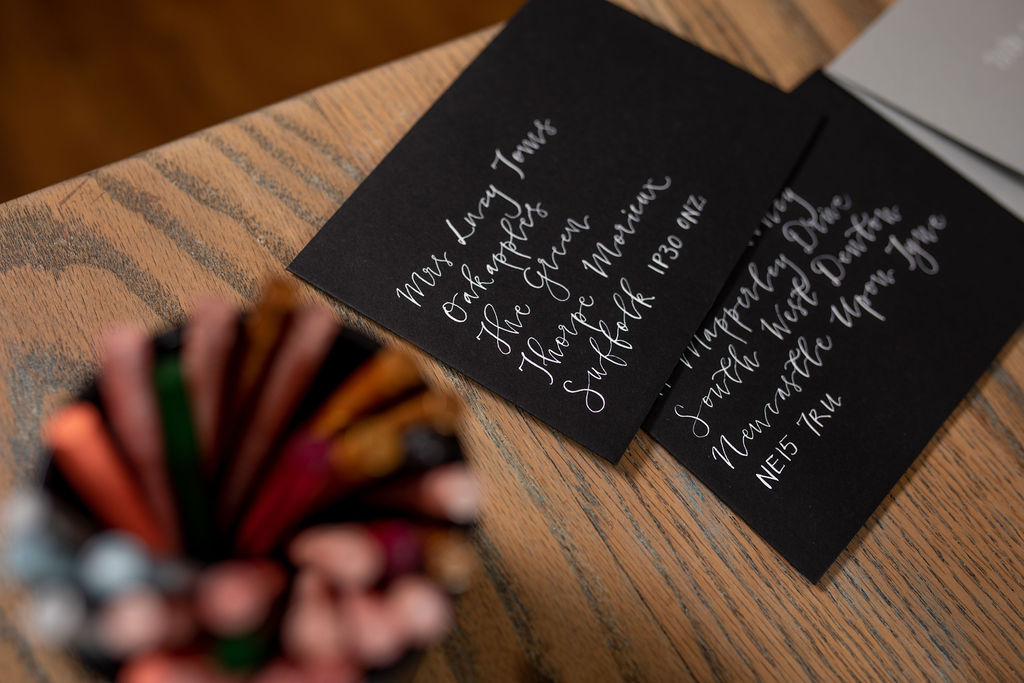 Mrs Lucy Toms
Oakapples
The Green
Thorpe Morieux
Suffolk IP30 0NZ
Mapperley Drive
South West Denton
Newcastle Upon Tyne
NE15 7RU